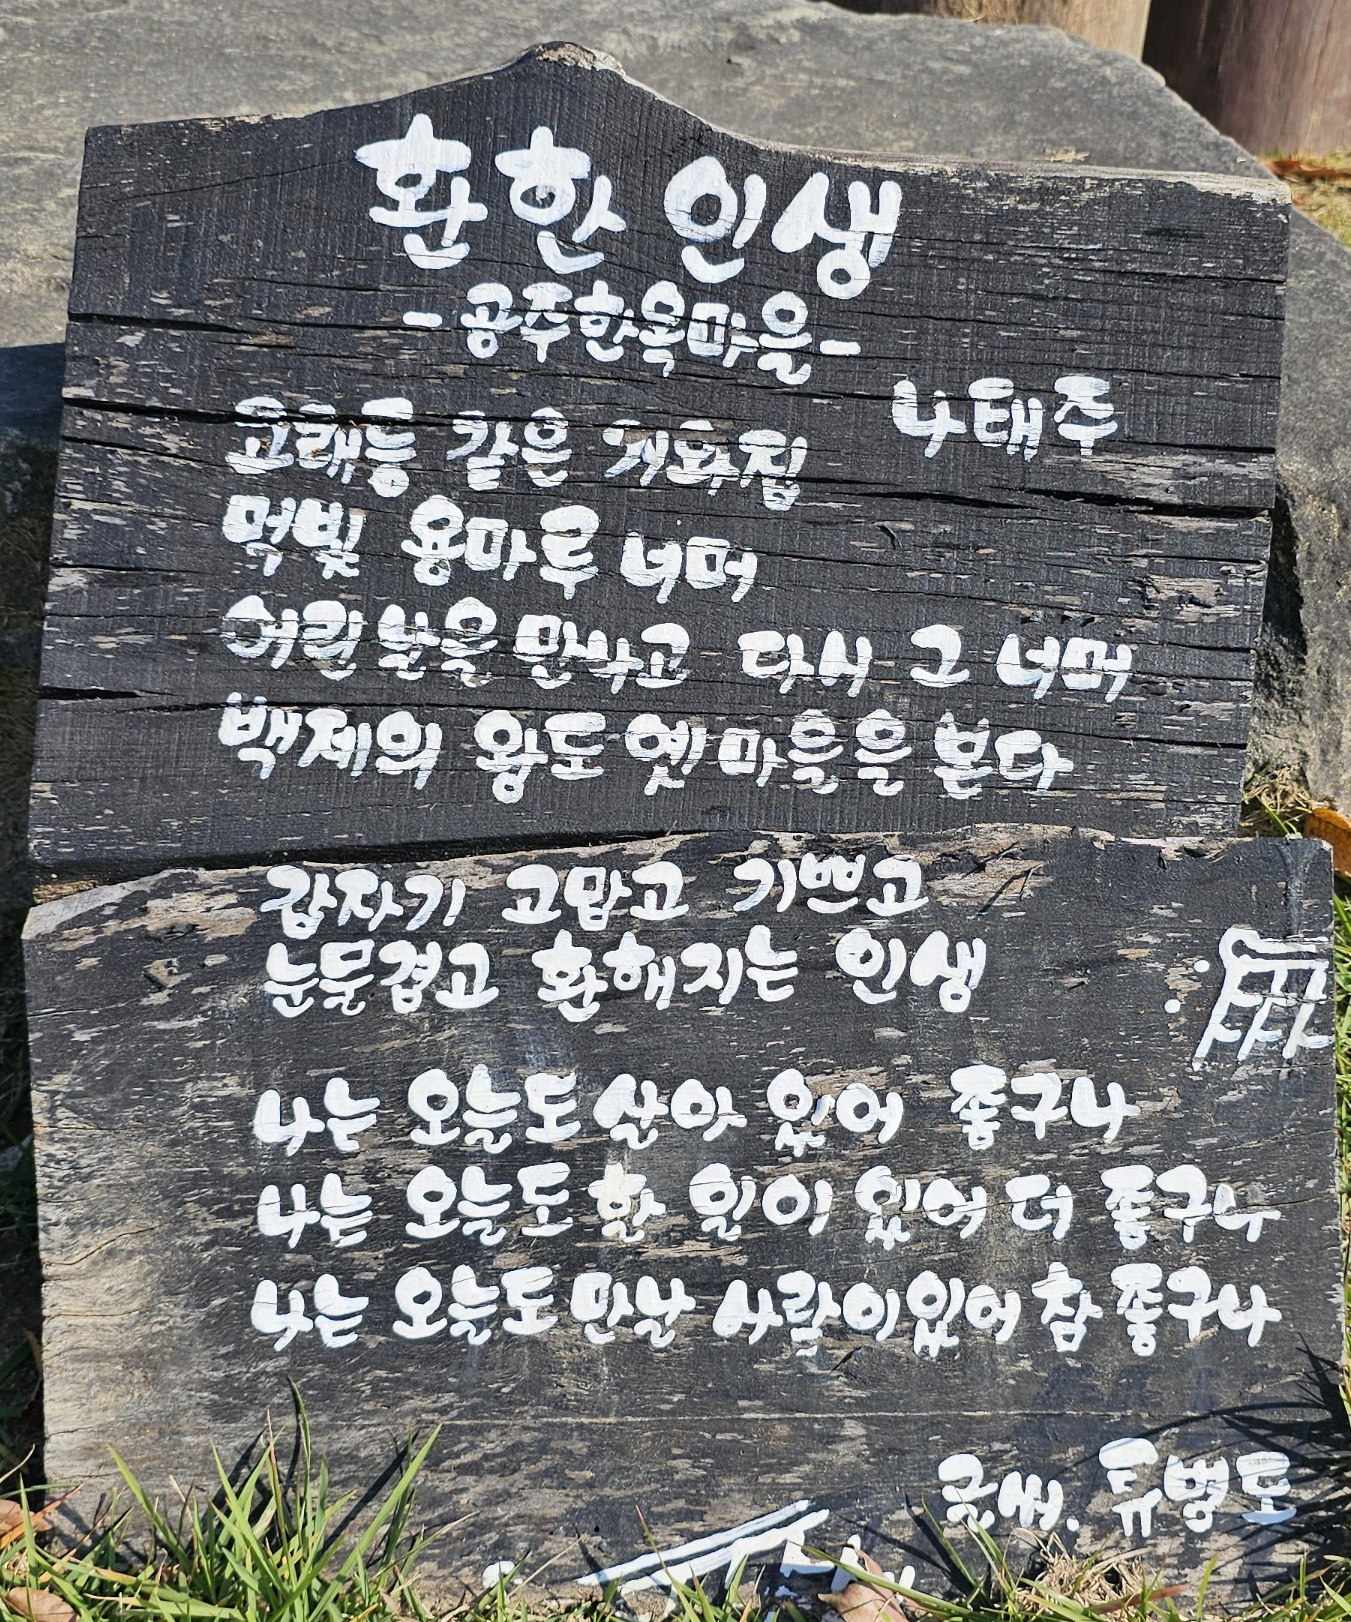 환한 인생
-공주한옥마을-
나태주
고래등 같은 기와집
먹빛 용마루 너머
어린 날을 만나고 다시 그 너머
백제의 왕도 옛 마을을 본다
갑자기 고맙고 기쁘고
눈물겹고 환해지는 인생
나는 오늘도 살아 있어 좋구나
나는 오늘도 할 일이 있어 더 좋구나
나는 오늘도 만날 사람이 있어 참 좋구나
글씨. 류병도